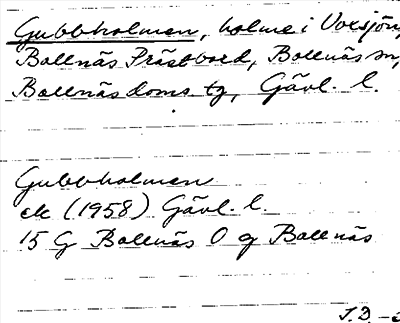 Gubbholmen, holme i Voxsjön,
Bollnäs Prästbord, Bollnäs sn,
Bollnäs doms tg, Gävl. l.
Gubbholmen
ek (1958) Gävl. l.
15 G Bollnäs O og Bollnäs